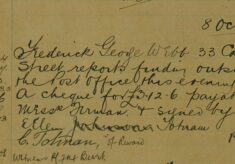 8 Oc
Frederick George Webb 33 Ca
Street reports finding outs
the Post Office this evening
A cheque for £342.6 payat
Mess Firman & signed by
Ellen Totnam
C. Totman, of Reward
Witness